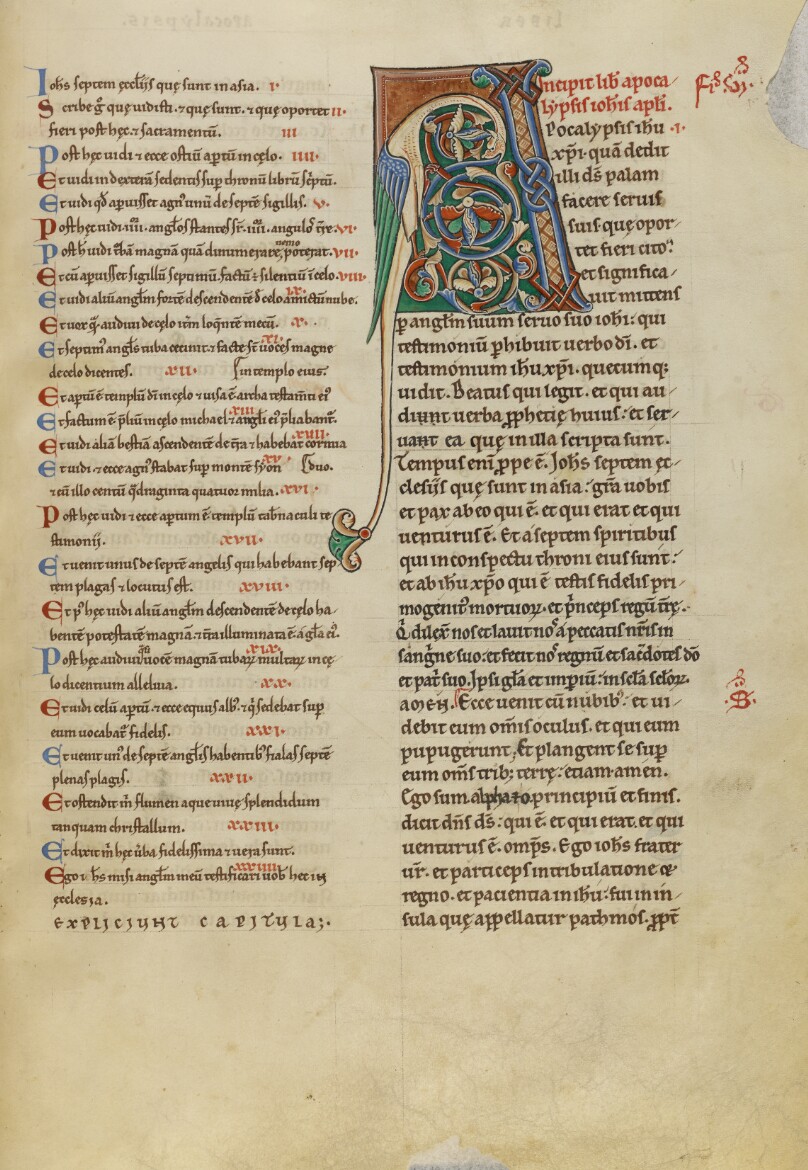 Iohs septem eccliis que sunt in asia. i.
Scribe g que uidisti. 7 que sunt. 7 que oportet ii.
fieri post hec. 7 sacramentū. iii
Post hec uidi 7 ecce ostiū aptū in celo. iiii.
Et uidi in dextera sedentis sup thronū librū scptū.
Et uidi qd apuisset agn unū de septē sigillis. v.
Post hec uidi .iiii. anglos stantes sr .iiii. angulos tre. vi.
Post h uidi tbā magnā quā dinumerare nemo poterat. vii.
Et cū apuisset sigillū septimū. factū ÷ silentiū icelo. viii.
Et uidi aliū anglm fortē descendentē d celo amictū nube. ix.
Et uox q audiui de celo itm loqntē mecū. x.
Et septim angls tuba cecinit. 7 facte st uoces magne xi.
de celo dicentes. xii. in templo eius.
Et aptū ē templū di in celo 7 uisa ē archa testamti ei
Et factum ē pliū in celo michael 7 angli ei pliabant. xiii
Et uidi aliā bestiā ascendentē de tra 7 habebat cornua xiiii.
Et uidi. 7 ecce agn stabat sup montē syon duo. xv
7 cū illo centū qdraginta quatuor milia. xvi.
Post hec uidi 7 ecce aptum ē templū tabnaculi te
stimonii. xvii.
Et uenit unus de septē angelis qui habebant sep
tem plagas 7 locutus est. xviii.
Et p hec uidi aliū anglm descendentē de celo ha
bentē potestatē magnā. 7 tra illuminata ē a gla ei.
Post hec audiui qsi uocē magnā tubarz multarz in ce xix.
lo dicentium alleluia. xx.
Et uidi celū aptū. 7 ecce equus alb. 7 q sedebat sup
eum uocabat fidelis. xxi.
Et uenit un de septē anglis habentib fialas septē
plenas plagis. xxii.
Et ostendit m flumen aque uiue splendidum
tanquam christallum. xxiii.
Et dixit m hec uba fidelissima 7 uera sunt.
Ego ihs misi anglm meū testificari uob hec in xxiiii
ecclesia.
EXPLICIUNT CAPITULA;.
Incipit lib apoca
lypsis iohis apli.
Apocalypsis ihu .i.
xpi. quā dedit
illi ds palam
facere seruis
suis que opor
tet fieri cito:
et significa
uit mittens
p anglm suum seruo suo iohi: qui
testimonium phibuit uerbo di. et
testimonium ihu xpi. quecumq;
uidit. Beatus qui legit. et qui au
diunt uerba pphetie huius: et ser
uant ea que in illa scripta sunt.
Tempus eni ppe ē. Iohs septem ec
clesiis que sunt in asia: gra uobis
et pax ab eo qui ē. et qui erat et qui
uenturus ē. Et a septem spiritibus
qui in conspectu throni eius sunt:
et ab ihu xpo qui ē testis fidelis pri
mogenit mortuorz. et pnceps regū tre.
Q dilex nos et lauit nos a peccatis nris in
sangne suo: et fecit nos regnū et sacdotes do
et patri suo. Ipsi gla et impiū: in scla sclorz.
amen. Ecce uenit cū nubib. et ui
debit eum omis oculus. et qui eum
pupugerunt. Et plangent se sup
eum oms trib; terre: etiam. amen.
Ego sum alpha 7 o. principiū et finis.
dicit dns ds: qui ē. et qui erat. et qui
uenturus ē. omps. Ego iohs frater
ur. et particeps in tribulatione et
regno. et pacientia in ihu: fui in in
sula que appellatur pathmos. ppt